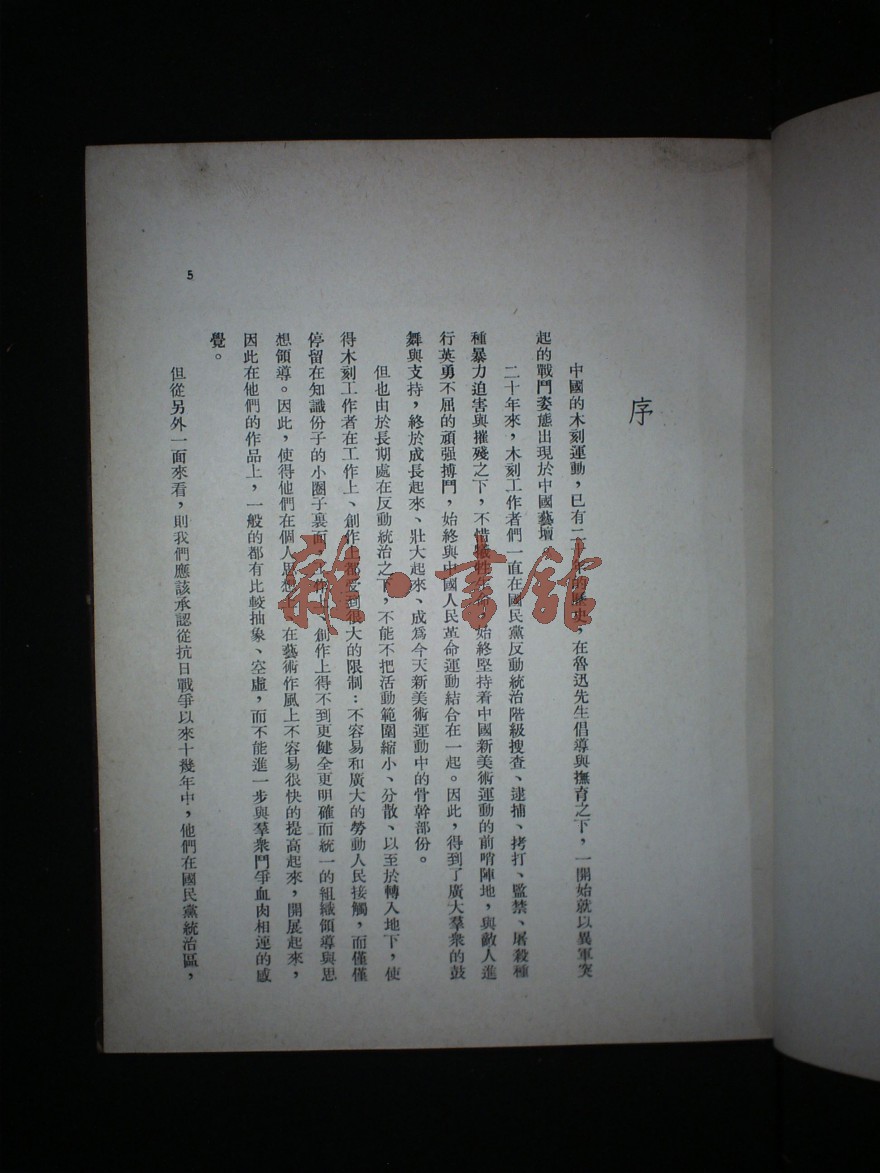 序
中國的木刻運動，已有二十年的歷史，在魯迅先生倡導與撫育之下，一開始就以異軍突
起的戰鬥姿態出現於中國藝壇。
二十年來，木刻工作者們一直在國民黨反動統治階級搜查、逮捕、拷打、監禁、屠殺種
種暴力迫害與摧殘之下，不惜犧牲生命，始終堅持着中國新美術運動的前哨陣地，與敵人進
行英勇不屈的頑强搏鬥，始終與中國人民革命運動結合在一起。因此，得到了廣大羣衆的鼓
舞與支持，終於成長起來、壯大起來、成爲今天新美術運動中的骨幹部份。
但也由於長期處在反動統治之下，不能不把活動範圍縮小、分散、以至於轉入地下，使
得木刻工作者在工作上、創作上都受到很大的限制：不容易和廣大的勞動人民接觸，而僅僅
停留在知識份子的小圈子裏面，工作上、創作上得不到更健全更明確而統一的組織領導與思
想領導。因此，使得他們在個人思想上、在藝術作風上不容易很快的提高起來，開展起來，
因此在他們的作品上，一般的都有比較抽象、空虛，而不能進一步與羣衆鬥爭血肉相連的感
覺。
但從另外一面來看，則我們應該承認從抗日戰爭以來十幾年中，他們在國民黨統治區，
5
雜·書館